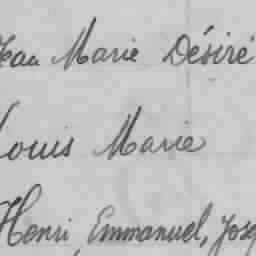 Jean Marie Désiré
Louis Marie
Henri, Emmanuel,